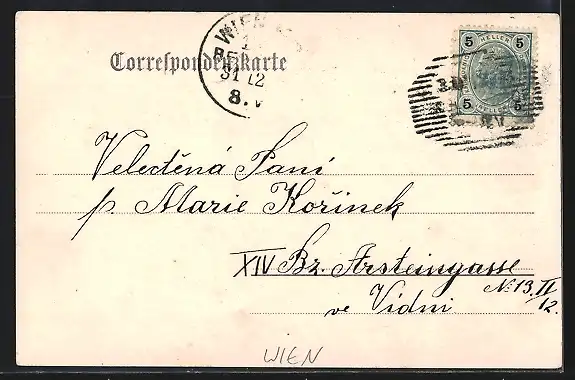 Correspondenzkarte
WIEN
31 12
8. V
5 HELLER 5
5 5
Velectěná Paní
p. Marie Kořínek
XIV Bz. Arsteingasse
No 13. II
12.
ve Vídni
WIEN